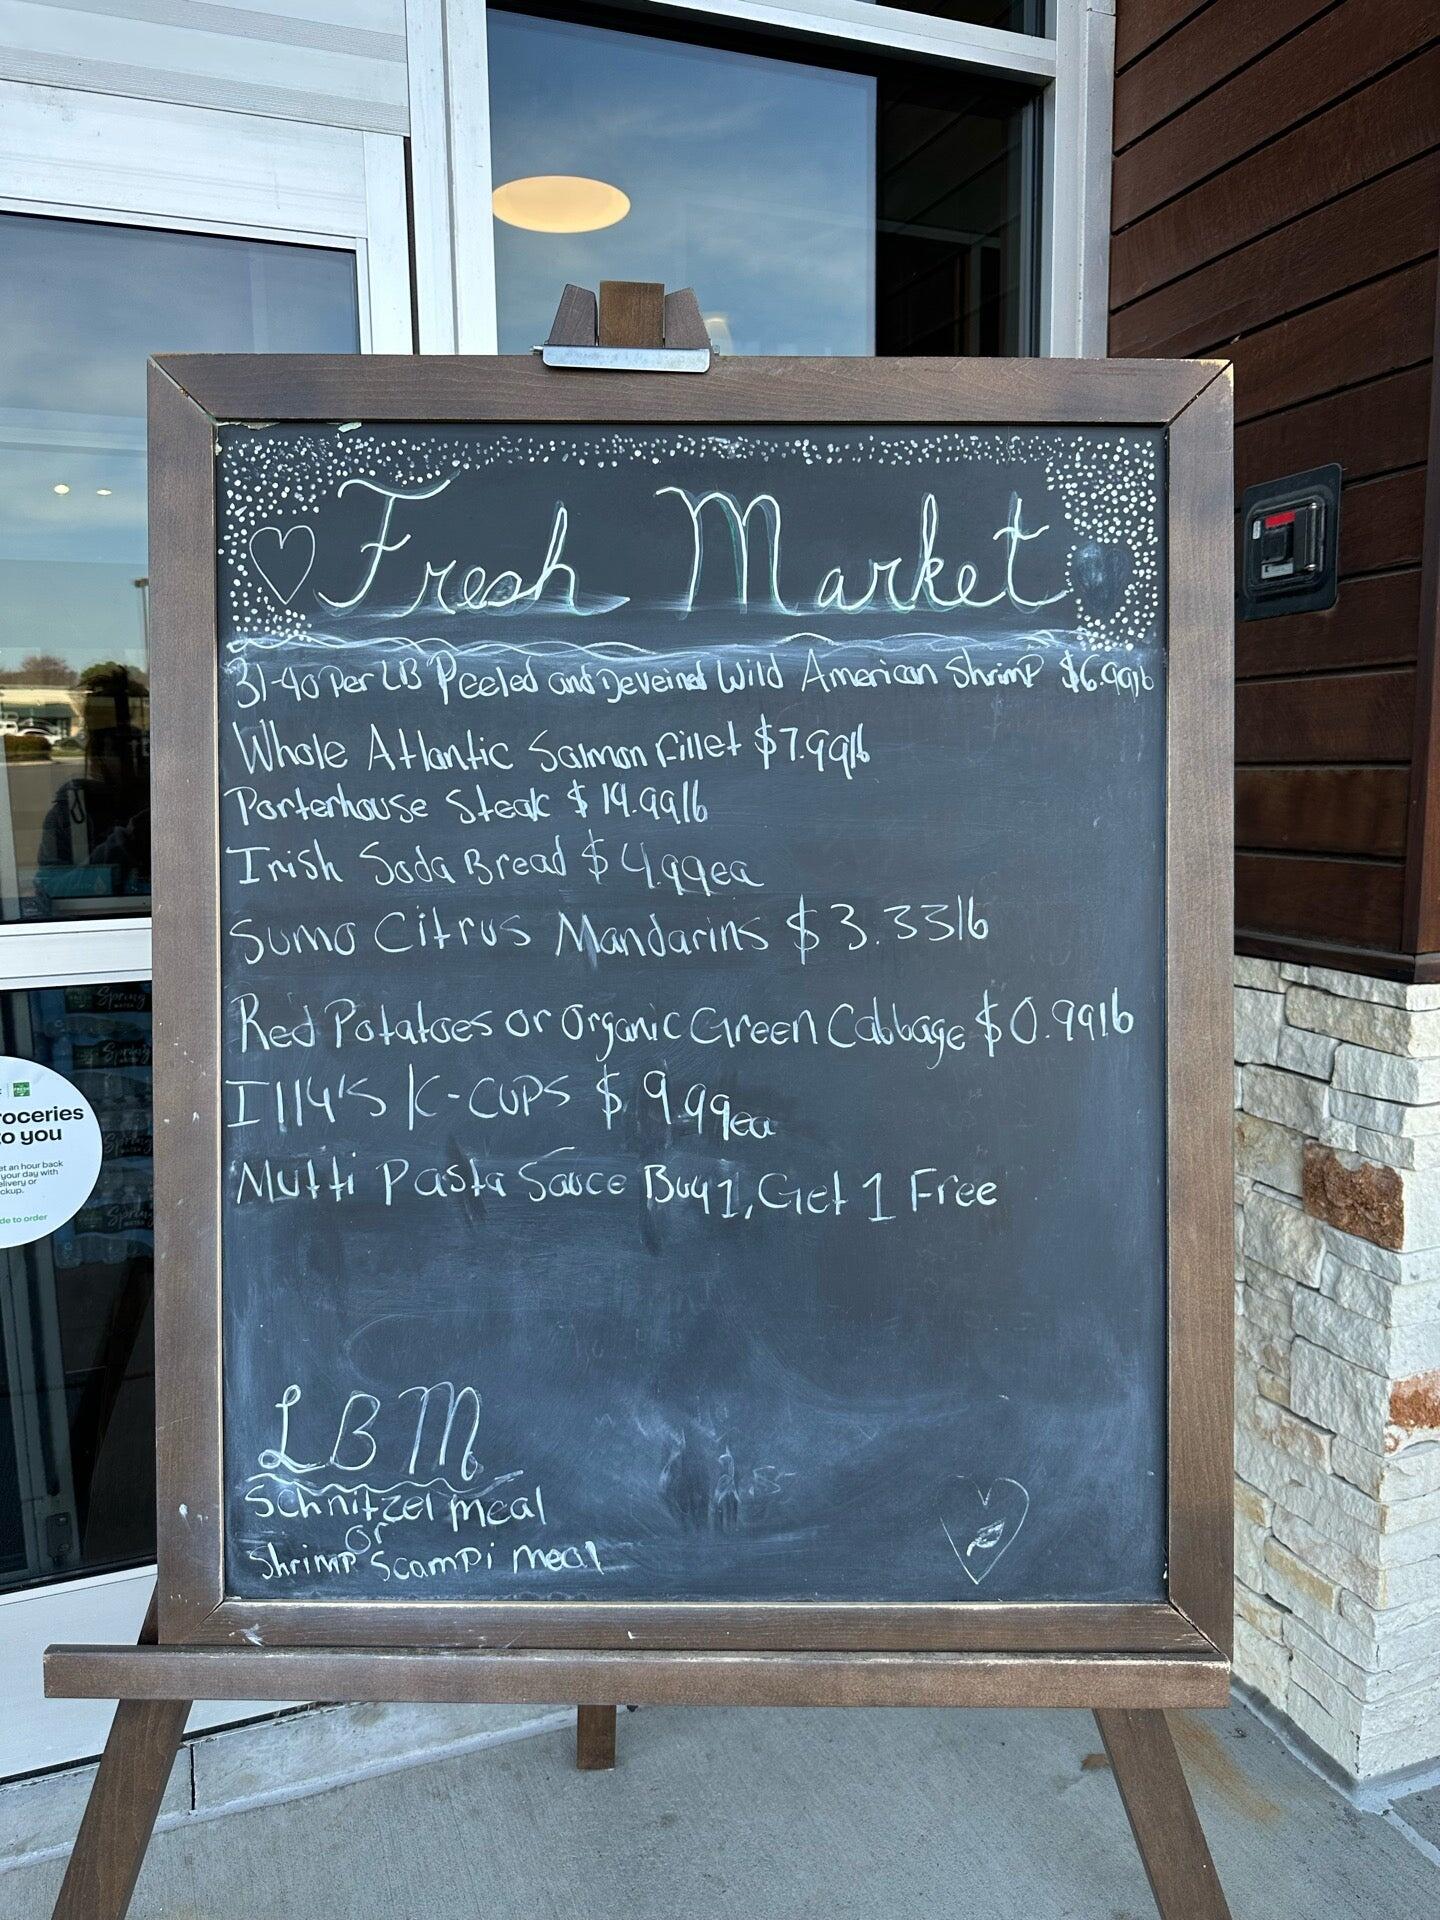 Fresh Market
31-40 Per LB Peeled and Deveined Wild American Shrimp $6.99lb
Whole Atlantic Salmon Fillet $7.99lb
Porterhouse Steak $19.99lb
Irish Soda Bread $4.99ea
Sumo Citrus Mandarins $3.33lb
Red Potatoes or Organic Green Cabbage $0.99lb
Illy's K-CUPS $9.99ea
Mutti Pasta Sauce Buy 1, Get 1 Free
LBM
Schnitzel meal
or
Shrimp Scampi meal
roceries
to you
et an hour back
your day with
elivery or
ckup.
de to order
Spring
Spring
Spring
Spring